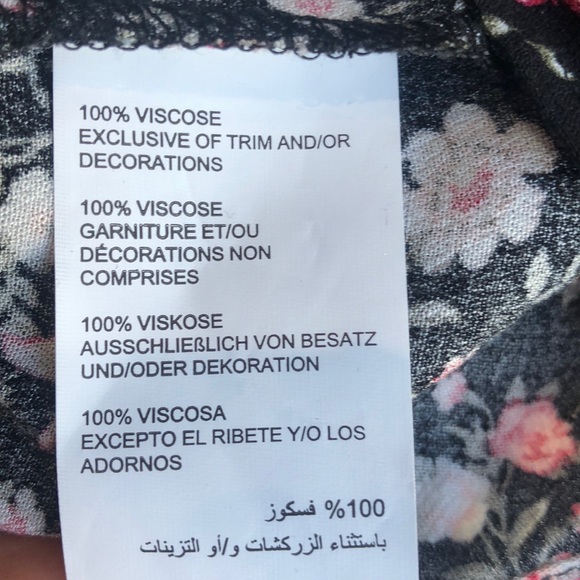 100% VISCOSE
EXCLUSIVE OF TRIM AND/OR
DECORATIONS
100% VISCOSE
GARNITURE ET/OU
DÉCORATIONS NON
COMPRISES
100% VISKOSE
AUSSCHLIEßLICH VON BESATZ
UND/ODER DEKORATION
100% VISCOSA
EXCEPTO EL RIBETE Y/O LOS
ADORNOS
100% فسكوز
باستثناء الزركشات و/أو التزينات